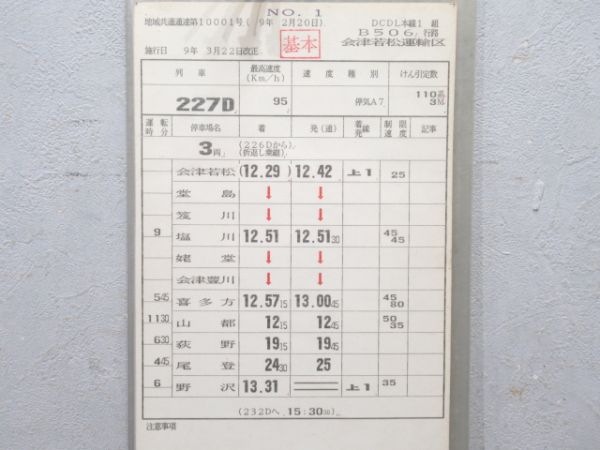 NO. 1
地域共通通達第10001号(9年 2月20日). DCDL本線1 組
B506 行路
施行日 9年 3月22日改正. 基本 会津若松運輸区
列車 最高速度 (Km/h) 速度種別 けん引定数
227D 95 停気A7 110 3
運転時分 停車場名 着 発(通) 着発線 制限速度 記事
3両」 (226Dから) (折返し乗継)
会津若松 (12.29) 12.42 上1 25
堂島 ↓ ↓
笈川 ↓ ↓
9 塩川 12.51 12.51 30 45 45
姥堂 ↓ ↓
会津豊川 ↓ ↓
5 45 喜多方 12.57 15 13.00 45 45 80
11 30 山都 12 15 12 45 50 35
6 30 荻野 19 15 19 45
4 45 尾登 24 30 25
6 野沢 13.31 上1 35
(232Dへ 15:30 30)
注意事項